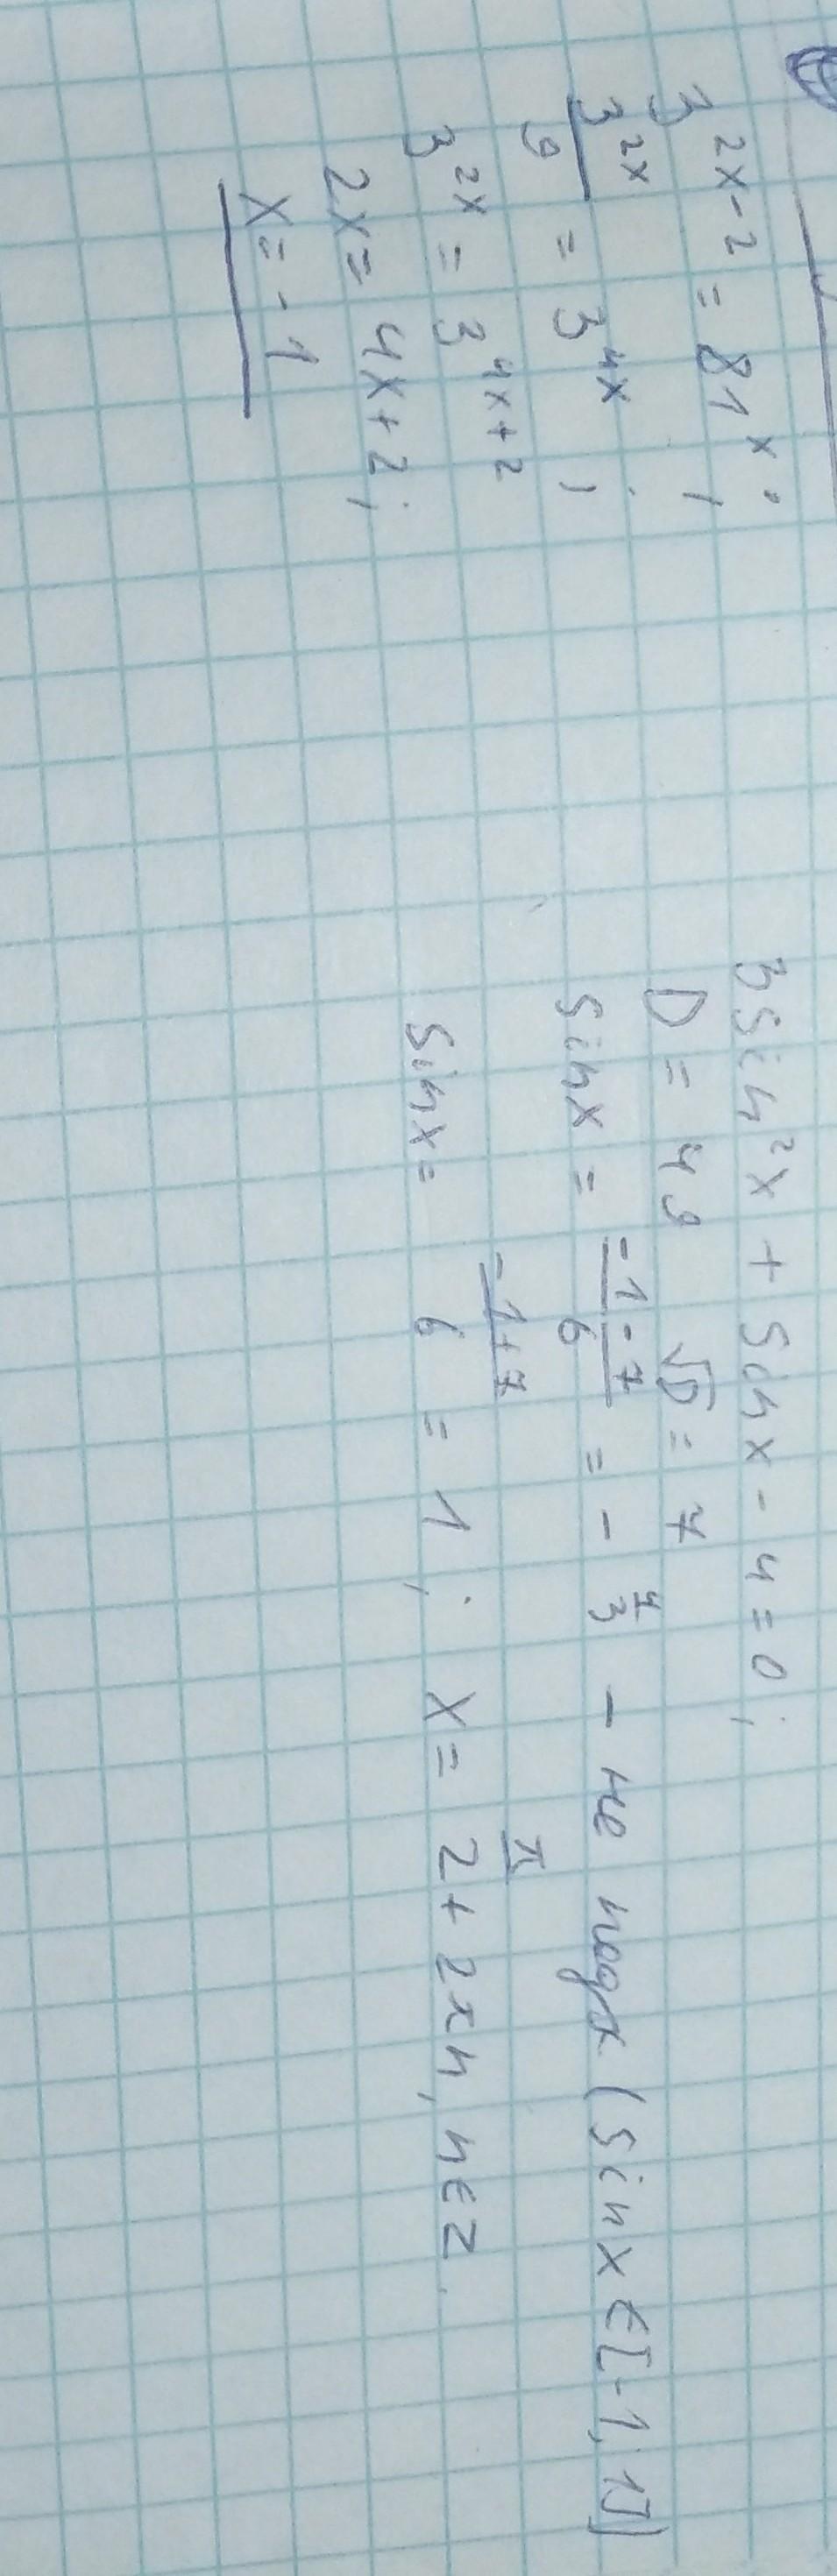 3^{2x-2} = 81^x;
\frac{3^{2x}}{9} = 3^{4x};
3^{2x} = 3^{4x+2}
2x = 4x+2;
x = -1
3sin²x + sinx - 4 = 0;
D = 49 √D = 7
sinx = \frac{-1-7}{6} = -\frac{4}{3} - не подх (sinx ∈ [-1; 1])
sinx = \frac{-1+7}{6} = 1; x = \frac{π}{2} + 2πn, n ∈ z